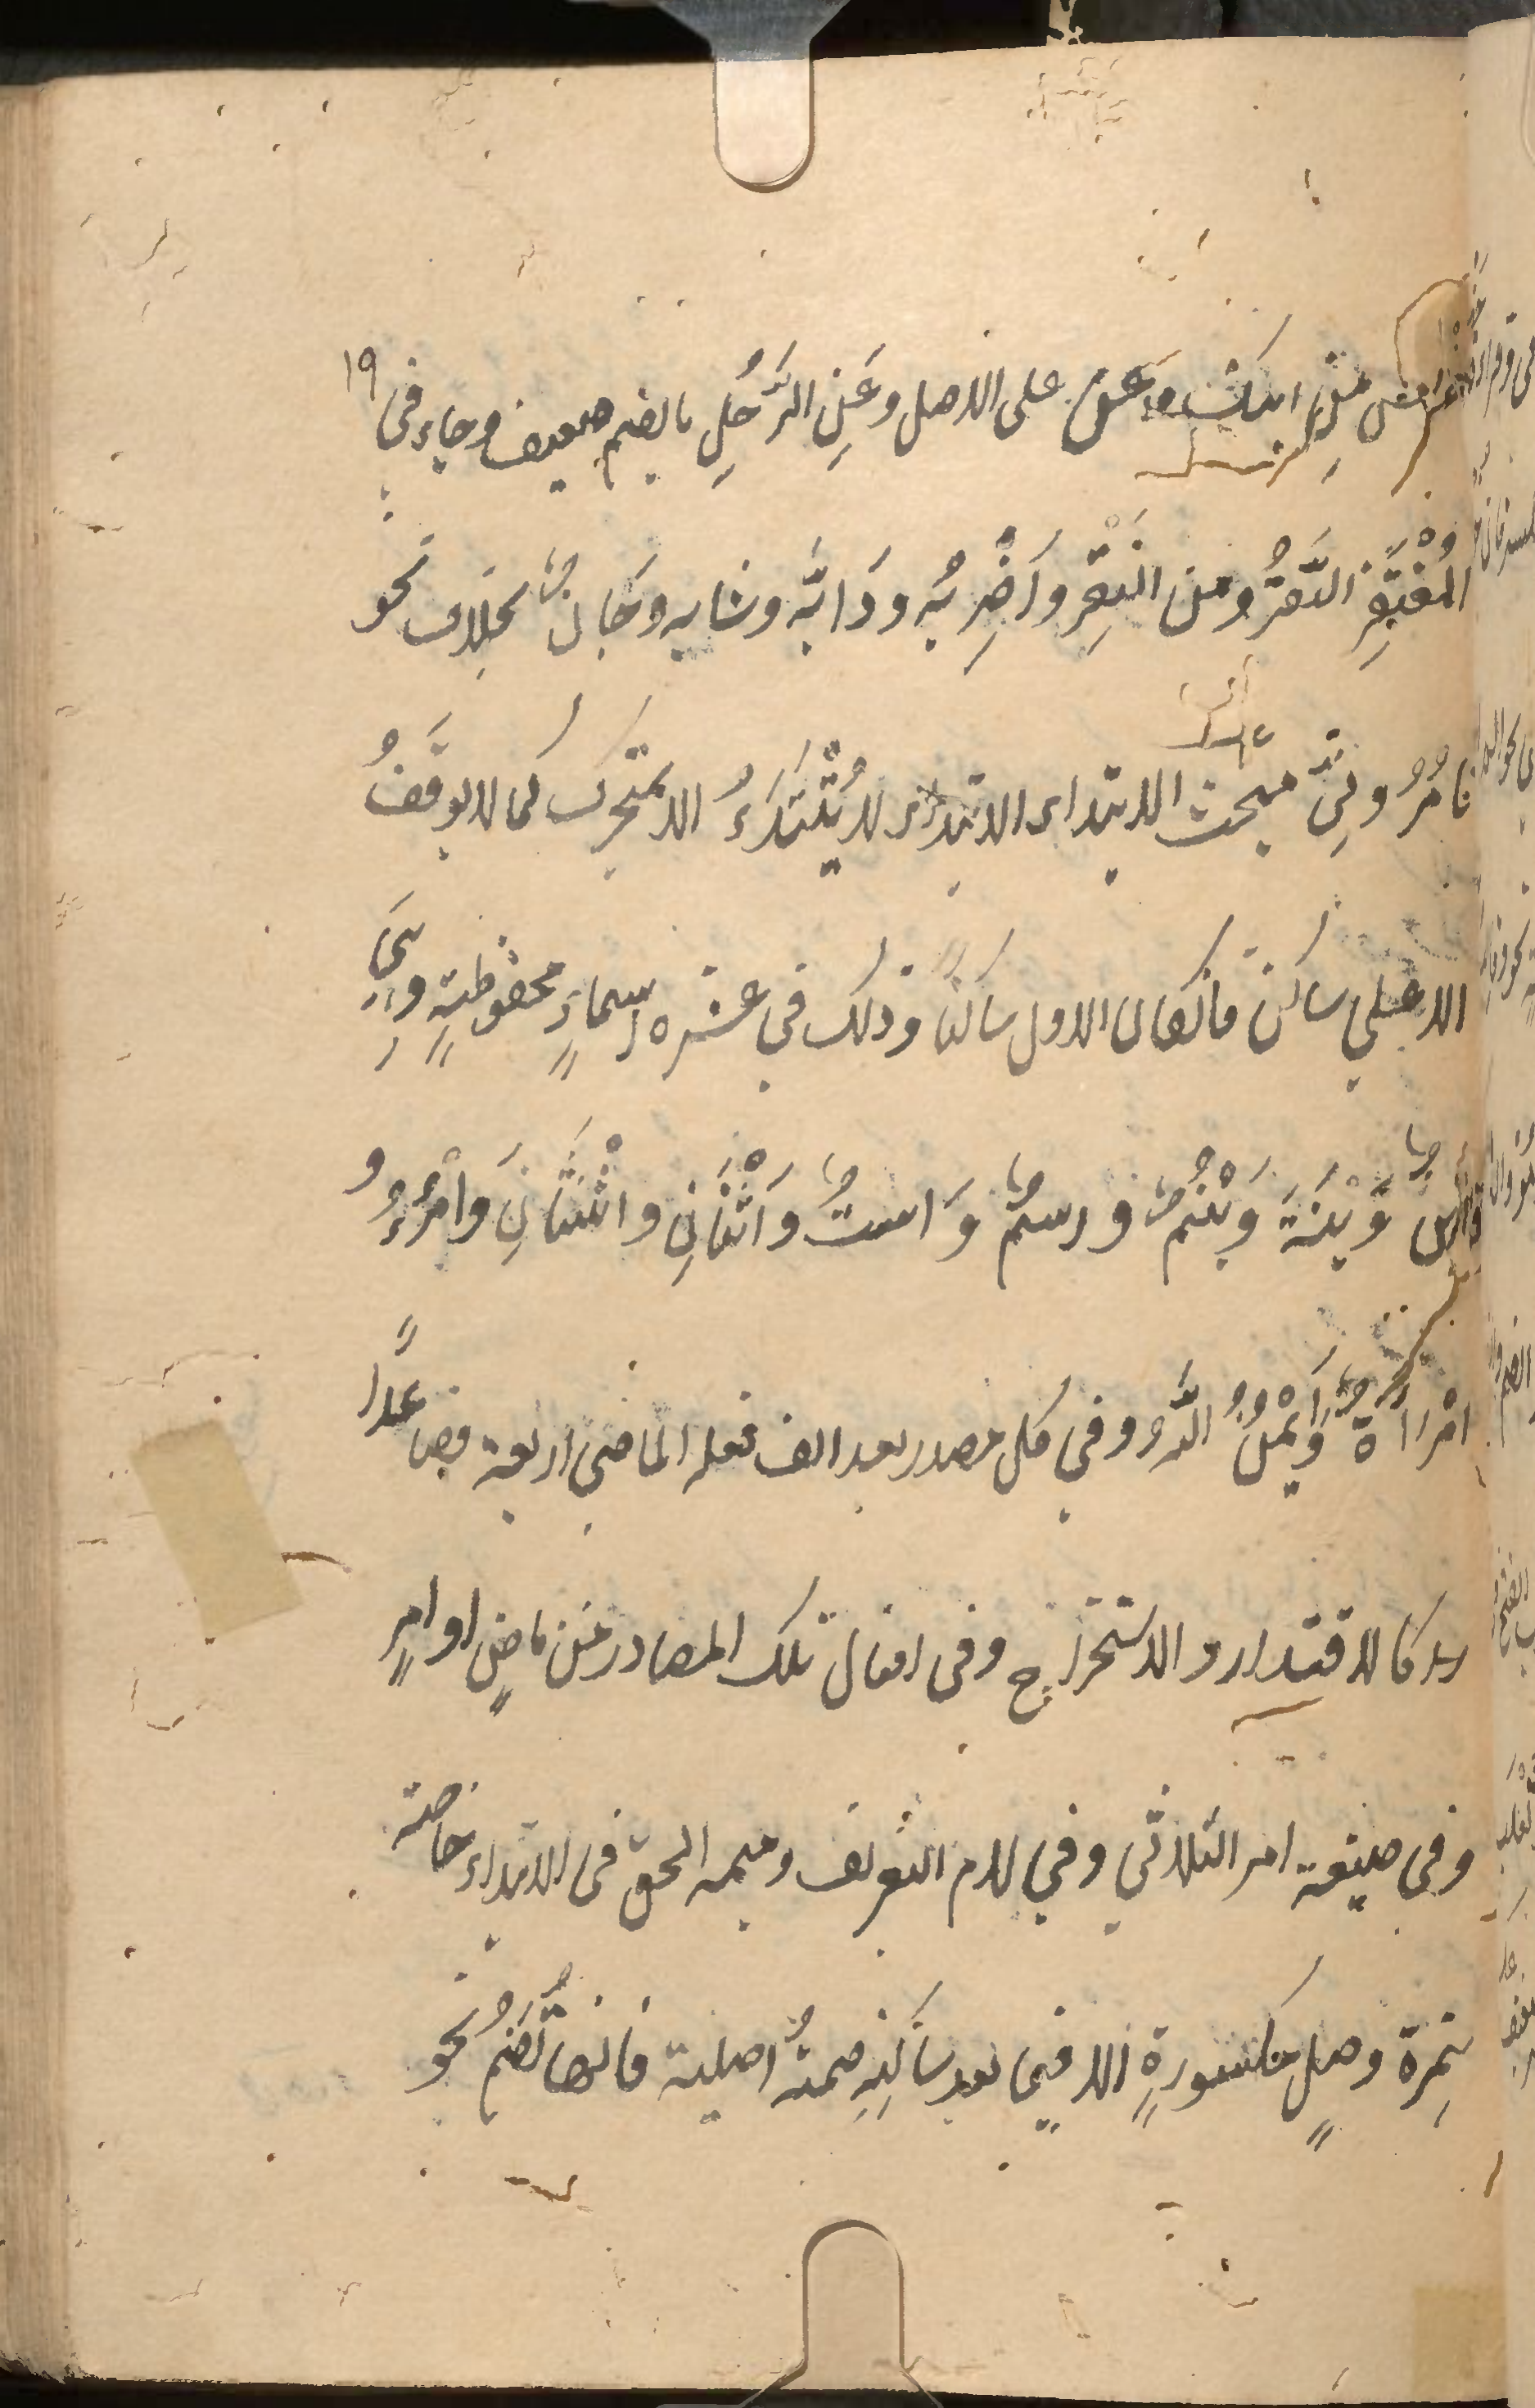 من ابنك وعن على الاصل وعَنِ الرَّجُلِ بالضم ضعيف وجاء في ١٩
المُغْتَفَرِ النَّقُرُ ومن النَقِرْ واَضْرِبُه ودَابَّه وشابه وجَانٌ بخلاف نحو
تامُرُونِيّ مبحث الابتداء الابتداء لا يُبْتَدَءُ الا بمتحرك كما لا يوقَفُ
الا على ساكن فان كان الاول ساكنا وذلك في عشره اسماءٍ محفوظةٍ وهِيَ
وَابْنَة وَابْنُمٌ واسمٌ وَاستٌ وَاثْنَانِ واثْنَتَانِ وَامْرُءٌ و
امْرَاَةٌ وَاَيْمُنُ اللّٰه وفي كل مصدر بعد الف فعله الماضي اربعة فصاعدًا
كالاقتدار والاستخراج وفي افعال تلك المصادر من ماضٍ او امرٍ
وفي صيغة امر الثلاثي وفي لام التعريف وميمه الحق في الابتداء خاصة
همزة وصلٍ مكسورةٍ الا فيما بعد ساكنِهِ ضمةٌ اصلية فانها تُضَمُّ نحو